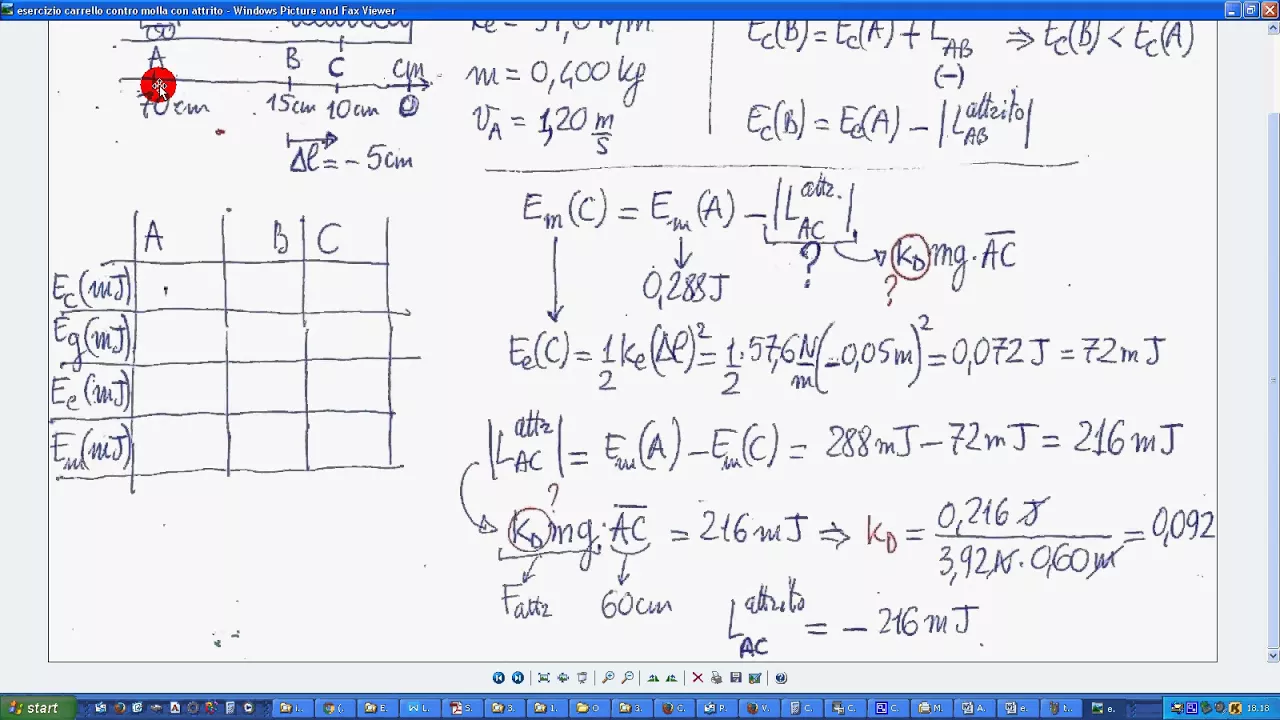 esercizio carrello contro molla con attrito - Windows Picture and Fax Viewer
A B C cm
70 cm 15cm 10cm 0
Δl = - 5cm
m = 0,400 kg
v_A = 1,20 m/s
E_c(B) = E_c(A) + L_AB ⇒ E_c(B) < E_c(A)
(-)
E_c(B) = E_c(A) - |L_AB^attrito|
A B C
E_c (mJ)
E_g (mJ)
E_e (mJ)
E_m (mJ)
E_m(C) = E_m(A) - |L_AC^attr.|
? k_D mg · AC
0,288J ?
E_e(C) = 1/2 k_e (Δl)² = 1/2 · 57,6 N/m (-0,05m)² = 0,072 J = 72 mJ
|L_AC^attr| = E_m(A) - E_m(C) = 288 mJ - 72 mJ = 216 mJ
?
k_D mg · AC = 216 mJ ⇒ k_D = 0,216 J / 3,92 N · 0,60 m = 0,092
F_attr 60cm
L_AC^attrito = - 216 mJ
start
18.18